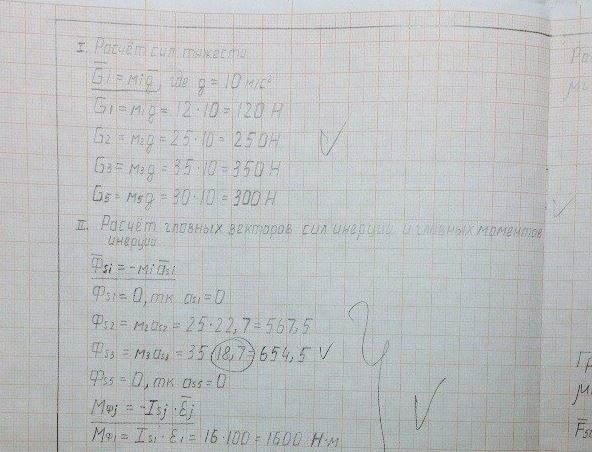 I. Расчёт сил тяжести
G̅i = mig̅, где g = 10 м/с²
G1 = m1g = 12·10 = 120 Н
G2 = m2g = 25·10 = 250Н
G3 = m3g = 35·10 = 350 Н
G5 = m5g = 30·10 = 300 Н
II. Расчёт главных векторов сил инерции и главных моментов
инерции
Ф̅si = -mia̅si
Фs1 = 0, тк as1 = 0
Фs2 = m2as2 = 25·22,7 = 567,5
Фs3 = m3as3 = 35·18,7 = 654,5
Фs5 = 0, тк as5 = 0
M̅Фj = -Isj·ε̅j
MФ1 = Is1·ε1 = 16·100 = 1600 Н·м